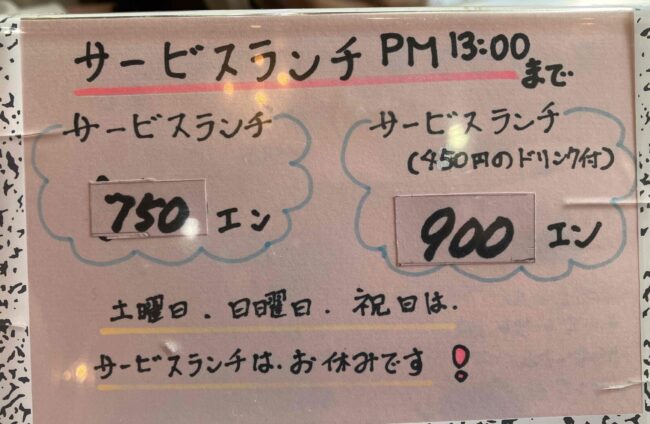 サービスランチ PM 13:00まで
サービスランチ
750 エン
サービスランチ
(450円のドリンク付)
900 エン
土曜日．日曜日．祝日は．
サービスランチは．お休みです！